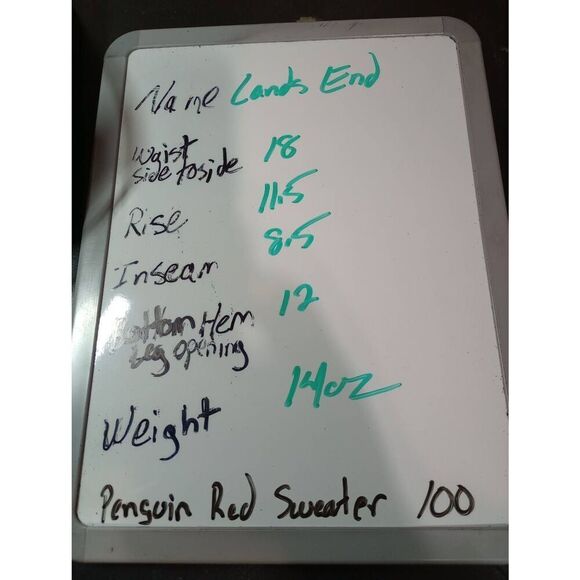 Name Lands End
Waist
side to side 18
Rise 11.5
Inseam 8.5
Bottom Hem
Leg opening 12
Weight 14oz
Penguin Red Sweater 100